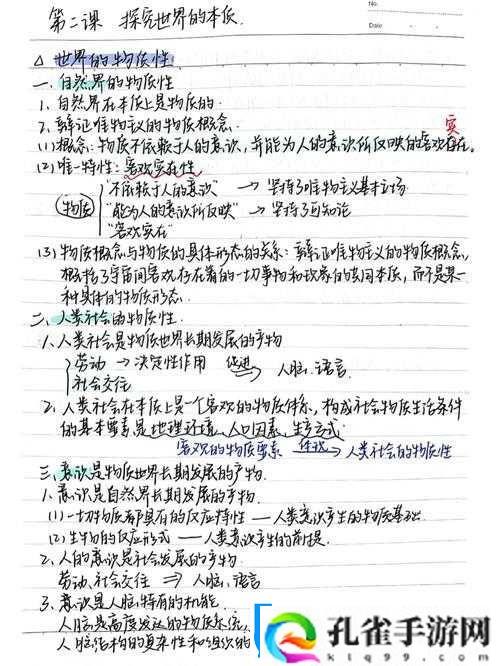 No.
Date
第二课 探究世界的本质
△ 世界的物质性
一. 自然界的物质性
1. 自然界在本质上是物质的.
2. 辩证唯物主义的物质概念.
(1) 概念: 物质不依赖于人的意识, 并能为人的意识所反映的客观存在.
实
(2) 唯一特性: 客观实在性
物质
"不依赖于人的意识" → 坚持了唯物主义基本立场
"能为人的意识所反映" → 坚持了可知论
"客观实在"
(3) 物质概念与物质的具体形态的关系: 辩证唯物主义的物质概念,
概括了宇宙间客观存在着的一切事物和现象的共同本质, 而不是某一
种具体的物质形态.
二. 人类社会的物质性.
1. 人类社会是物质世界长期发展的产物
劳动 → 决定性作用 促进 → 人脑. 语言.
社会交往
2. 人类社会在本质上是一个客观的物质体系, 构成社会物质生活条件
的基本要素是地理环境, 人口因素, 生产方式.
客观的物质要素 体现 → 人类社会的物质性
三. 意识是物质世界长期发展的产物.
1. 意识是自然界长期发展的产物.
(1) 一切物质都具有的反应特性 — 人类意识产生的物质基础
(2) 生物的反应形式 — 人类意识产生的前提.
2. 人的意识是社会发展的产物
劳动, 社会交往 ⇒ 人脑, 语言
3. 意识是人脑特有的机能.
人脑是高度发达的物质系统,
人脑结构的复杂性和组织的
孔雀手游网
ktq999.com